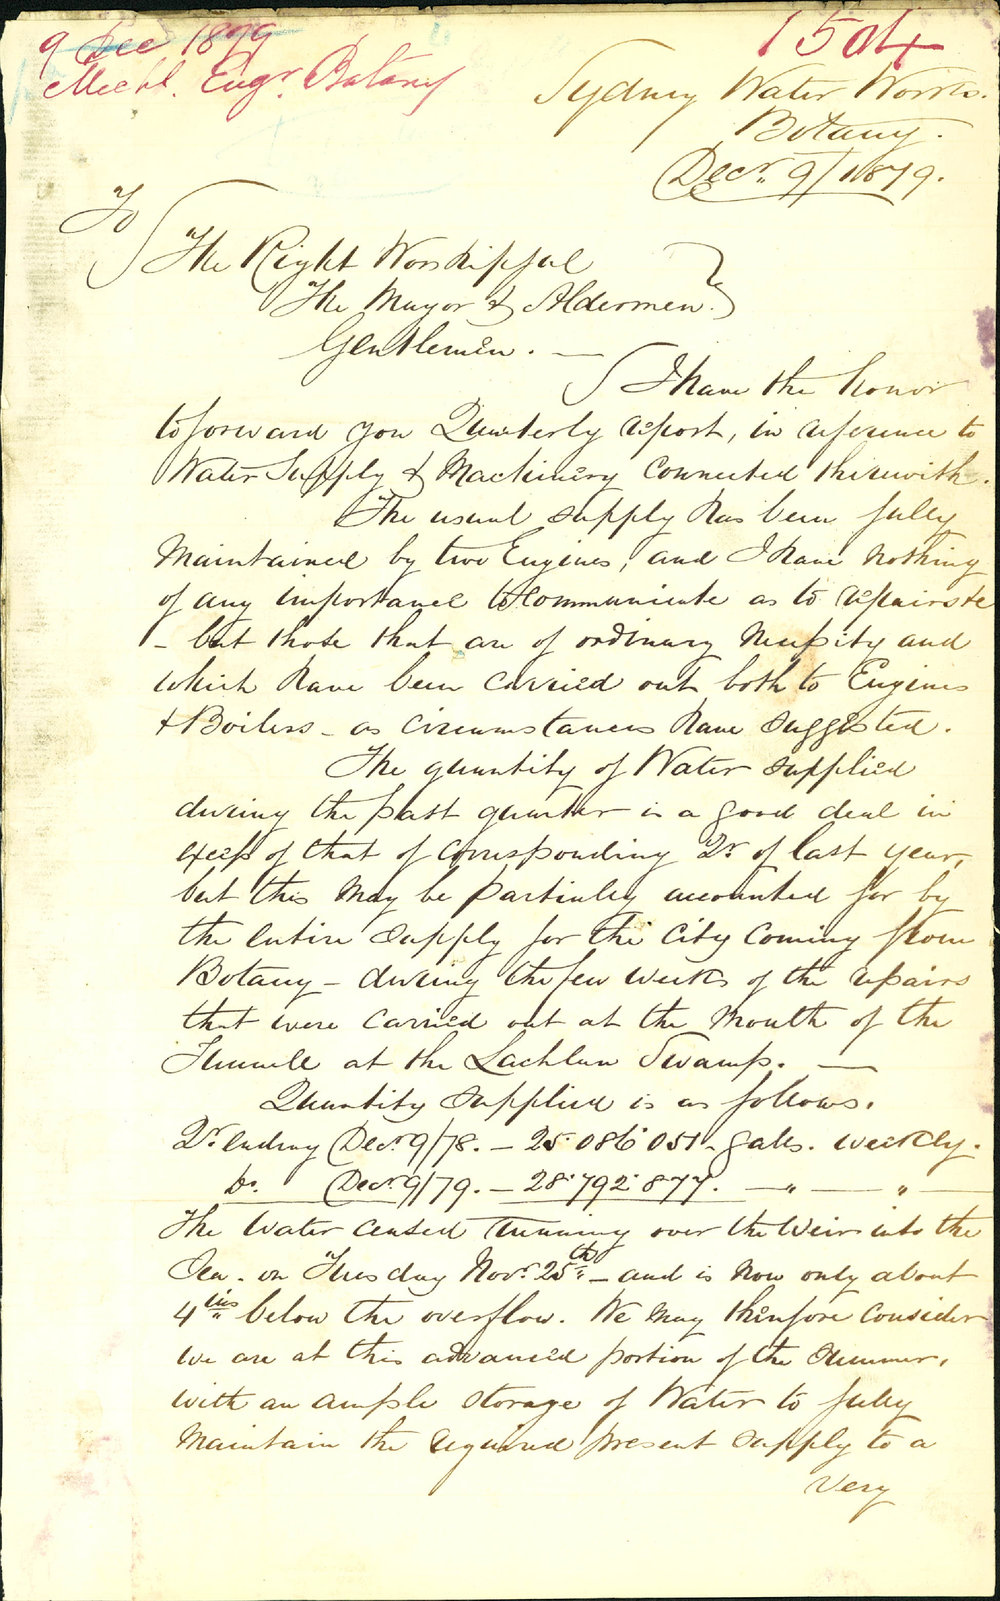 9 Dec 1879
1504
Mechl. Engr. Botany
Sydney Water Works.
Botany.
Decr. 9/1879.
To
The Right Worshipful
The Mayor & Aldermen.
Gentlemen. —
I have the honor
to forward you Quarterly report, in reference to
Water Supply & Machinery connected therewith.
The usual supply has been fully
Maintained by two Engines, and I have nothing
of any importance to communicate as to repairs &c
- but those that are of ordinary necessity and
which have been carried out both to Engines
& Boilers - as circumstances have suggested.
The quantity of Water supplied
during the past quarter is a good deal in
excess of that of corresponding Qr. of last year,
but this may be partially accounted for by
the entire supply for the City coming from
Botany - during the few weeks of the repairs
that were carried out at the Mouth of the
Tunnell at the Lachlan Swamp. —
Quantity supplied is as follows.
Qr. ending Decr. 9/78. - 25.086.051 - galls. weekly.
Do. Decr. 9/79. - 28.792.877. — " — " —
The Water ceased running over the Weir into the
Sea. on Tuesday Novr. 25th. - and is now only about
4 ins below the overflow. We may therefore consider
we are at this advanced portion of the Summer,
with an ample storage of Water to fully
Maintain the required present supply to a
very